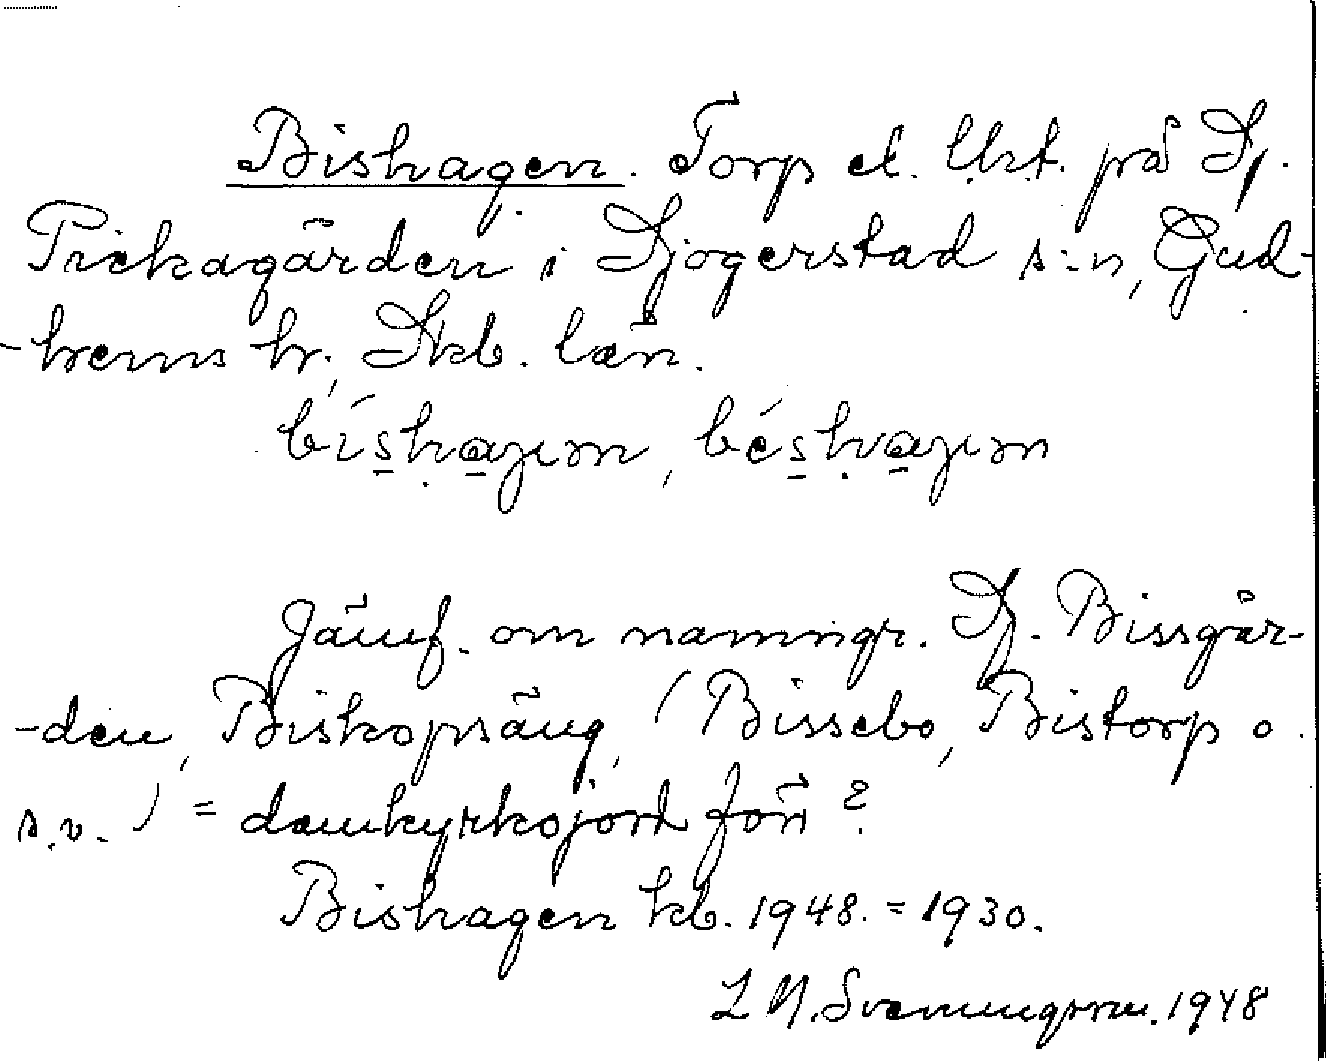 Bishagen. Torp el. lht. på Sj.
Prickagården i Sjogerstad s:n, Gud-
-hems hr, Skb. län.
bíshaʒım, béshvaʒım
Jämf. om namngr. Sj. Bissgår-
-den, Biskopsäng, (Bissebo, Bistorp o.
s.v.) = domkyrkojord förr?
Bishagen kb. 1948. = 1930.
L N. Svenungsson. 1948